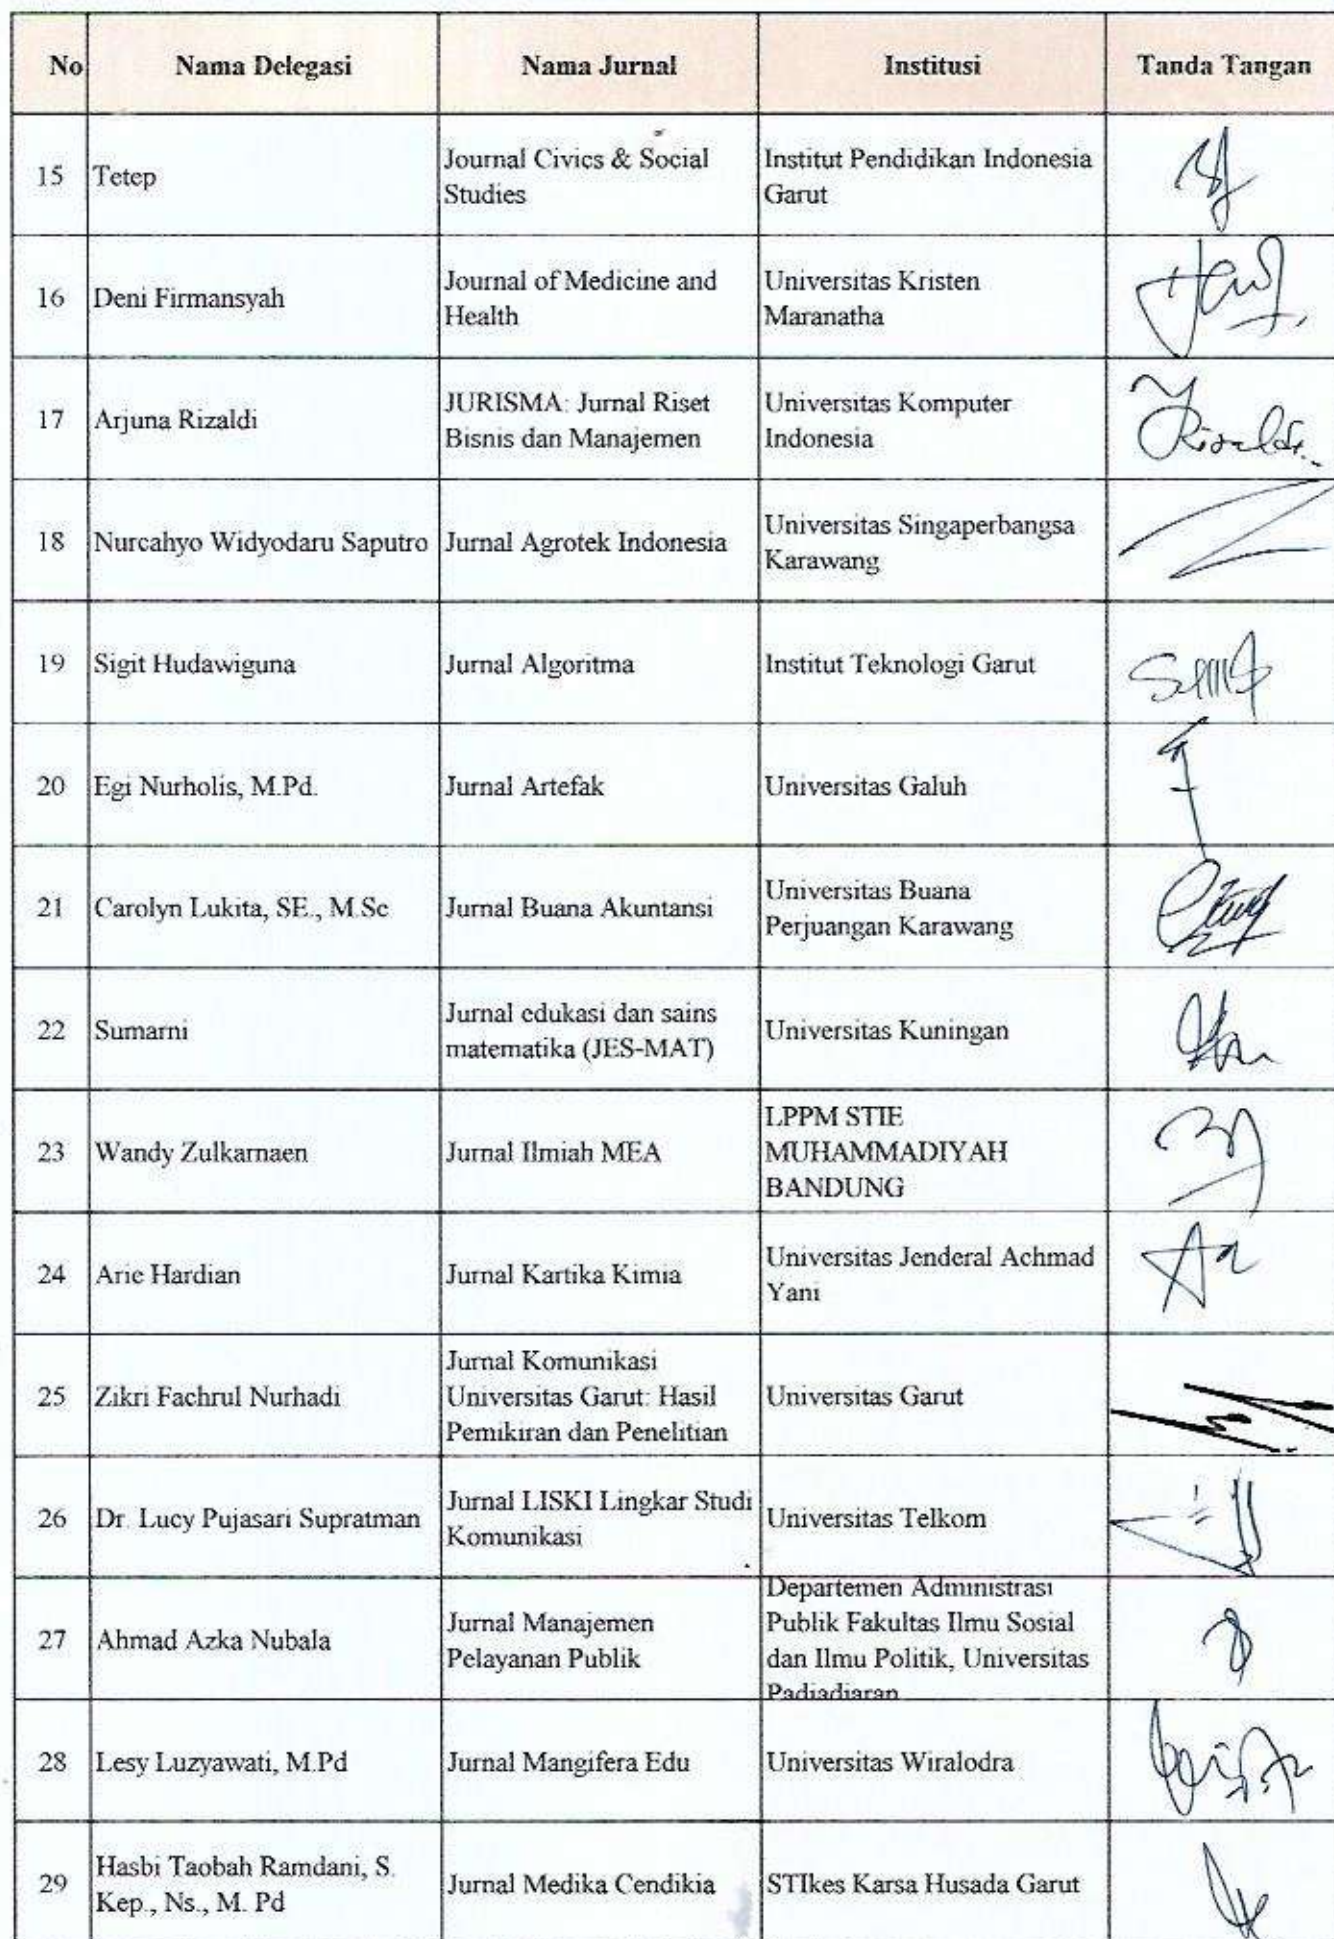 No Nama Delegasi Nama Jurnal Institusi Tanda Tangan
15 Tetep Journal Civics & Social Studies Institut Pendidikan Indonesia Garut
16 Deni Firmansyah Journal of Medicine and Health Universitas Kristen Maranatha
17 Arjuna Rizaldi JURISMA: Jurnal Riset Bisnis dan Manajemen Universitas Komputer Indonesia Rizaldi
18 Nurcahyo Widyodaru Saputro Jurnal Agrotek Indonesia Universitas Singaperbangsa Karawang
19 Sigit Hudawiguna Jurnal Algoritma Institut Teknologi Garut
20 Egi Nurholis, M.Pd. Jurnal Artefak Universitas Galuh
21 Carolyn Lukita, SE., M.Sc Jurnal Buana Akuntansi Universitas Buana Perjuangan Karawang
22 Sumarni Jurnal edukasi dan sains matematika (JES-MAT) Universitas Kuningan
23 Wandy Zulkarnaen Jurnal Ilmiah MEA LPPM STIE MUHAMMADIYAH BANDUNG
24 Arie Hardian Jurnal Kartika Kimia Universitas Jenderal Achmad Yani
25 Zikri Fachrul Nurhadi Jurnal Komunikasi Universitas Garut: Hasil Pemikiran dan Penelitian Universitas Garut
26 Dr. Lucy Pujasari Supratman Jurnal LISKI Lingkar Studi Komunikasi Universitas Telkom
27 Ahmad Azka Nubala Jurnal Manajemen Pelayanan Publik Departemen Administrasi Publik Fakultas Ilmu Sosial dan Ilmu Politik, Universitas Padjadjaran
28 Lesy Luzyawati, M.Pd Jurnal Mangifera Edu Universitas Wiralodra
29 Hasbi Taobah Ramdani, S. Kep., Ns., M. Pd Jurnal Medika Cendikia STIkes Karsa Husada Garut